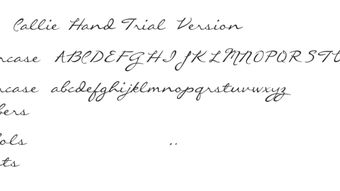 Callie Hand Trial Version
rcase ABCDEFGHIJKLMNOPQRSTU
rcase abcdefghijklmnopqrstuvwxyz
bers
ols ..
ts